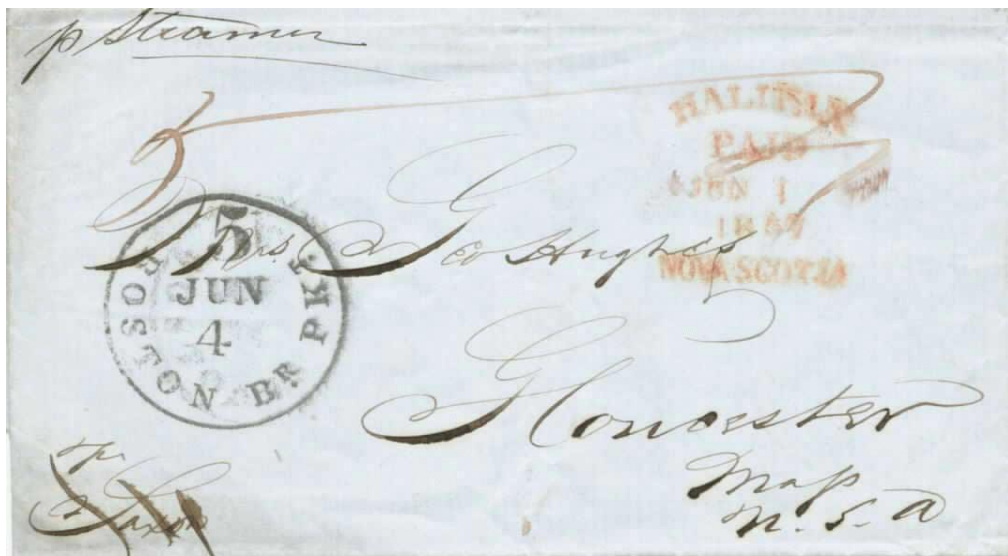 p Steamer
HALIFAX
PAID
JUN 1
NOVA SCOTIA
5
BOSTON BR. PKT.
JUN
4
Geo Hughes
Gloucester
Mass
U. S. A